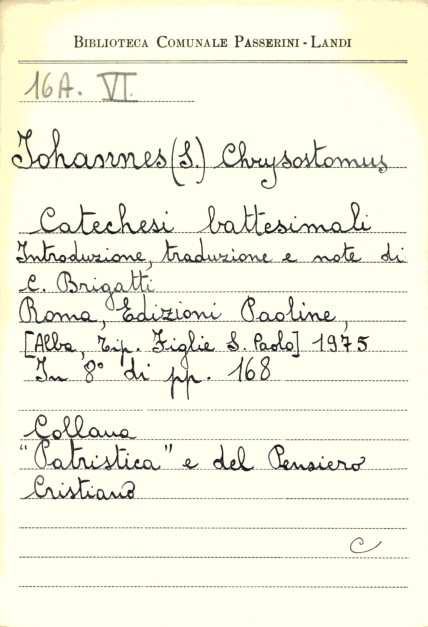 BIBLIOTECA COMUNALE PASSERINI-LANDI
16A. VI.
Johannes (S.) Chrysostomus
Catechesi battesimali
Introduzione, traduzione e note di
C. Brigatti
Roma, Edizioni Paoline,
[Alba, Tip. Figlie S. Paolo] 1975
In 8° di pp. 168
Collana
"Patristica" e del Pensiero
Cristiano
C